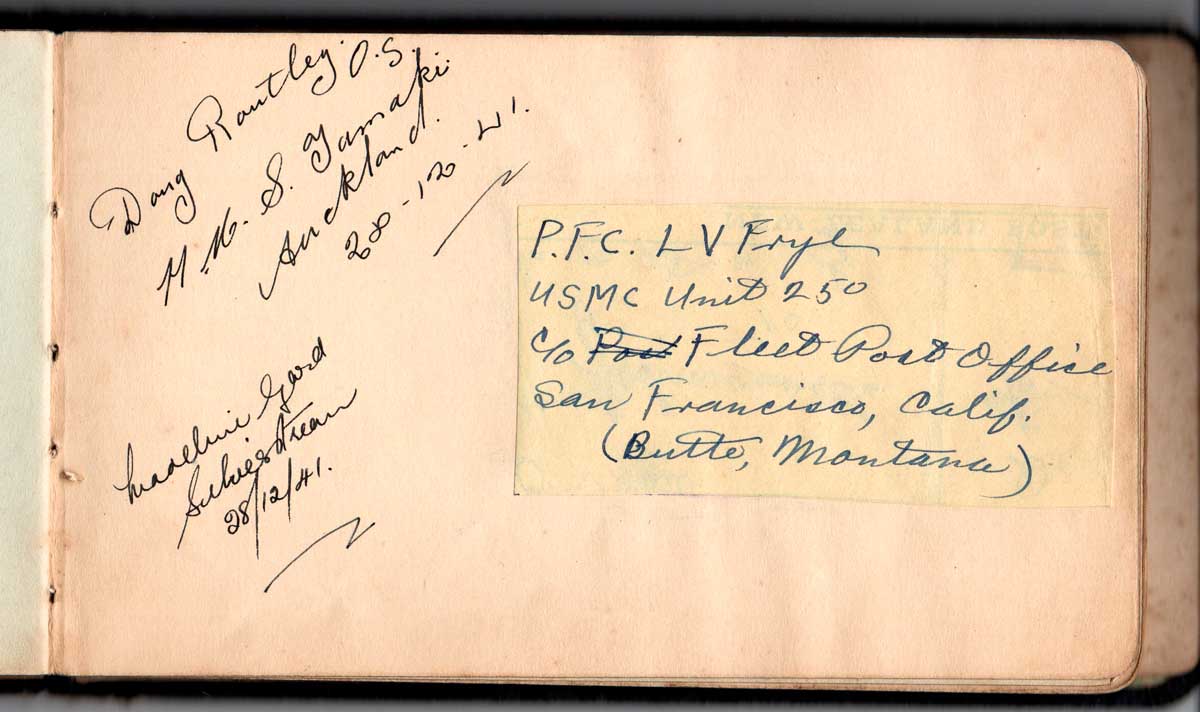 Doug Routley O.S.
H.M.S. Tamaki
Auckland.
28-12-41.
Madeline Gard
Silverstream
28/12/41.
P.F.C. L V Frye
USMC Unit 250
c/o Post Fleet Post Office
San Francisco, Calif.
(Butte, Montana)